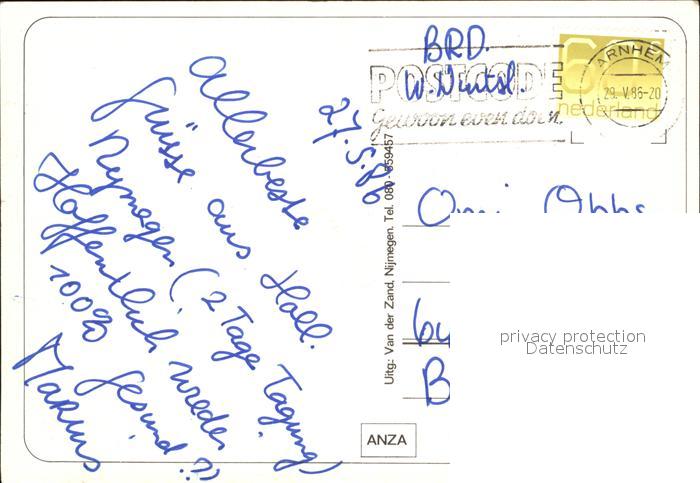 Allerbeste
Grüsse aus Holl.
Nijmegen (2 Tage Tagung)
Hoffentlich wieder
100% gesund!!
Markus
27.5.86
BRD.
W.
POSTCODE
Gewoon even doen.
ARNHEM
29. V.86-20
60
nederland
Omi
B
Uitg.: Van der Zand, Nijmegen. Tel. 080 - 559457
ANZA
privacy protection
Datenschutz